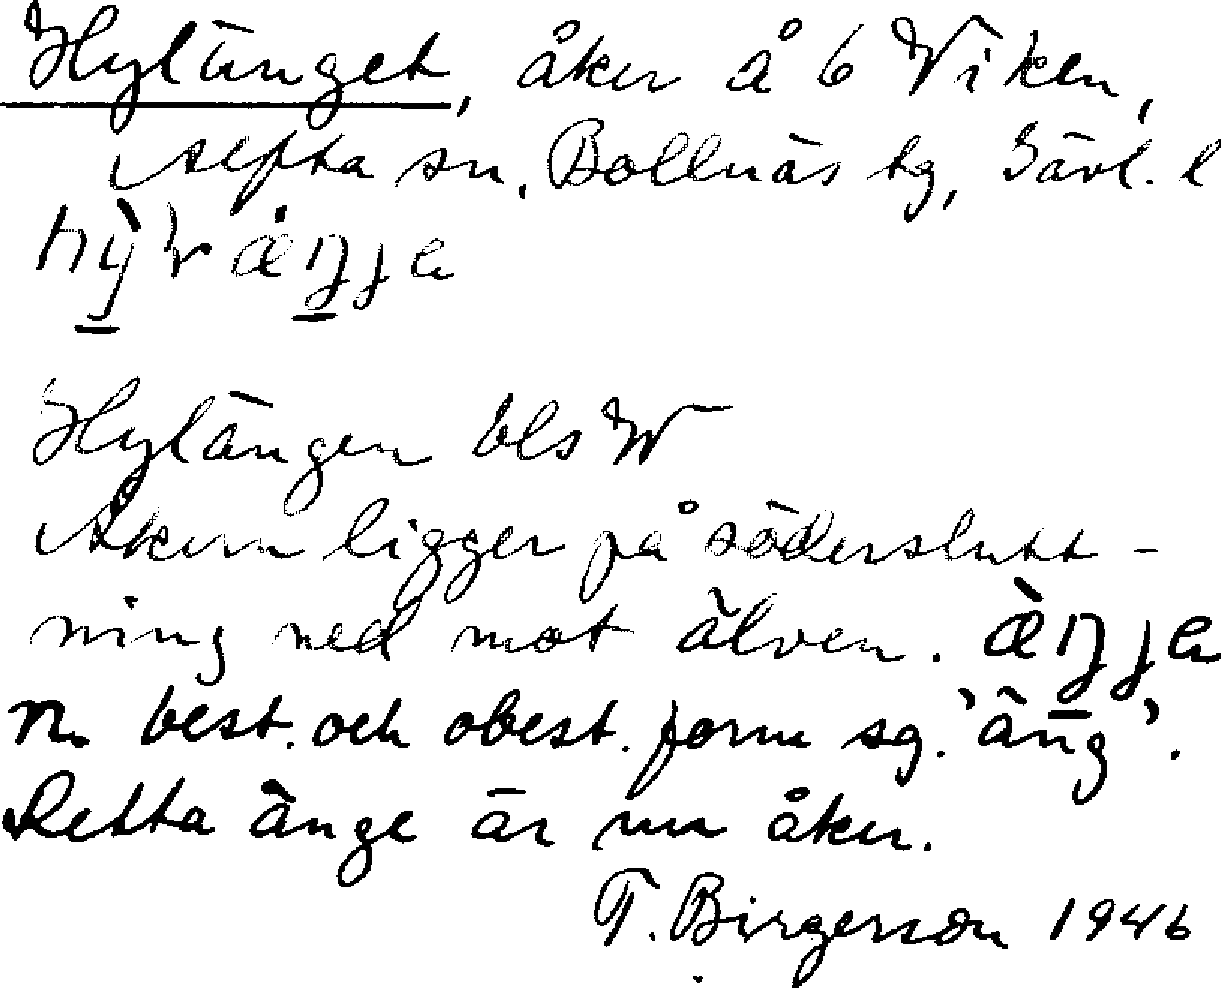 Hyländget, åker å 6 Viken,
Alfta sn, Bollnäs tg, Gävl. l
Hylängen bls W
Åkern ligger på söderslutt-
ning ned mot älven. æ̀ŋja
n. best. och obest. form sg. 'äng'.
Detta änge är nu åker.
T. Birgerson 1946